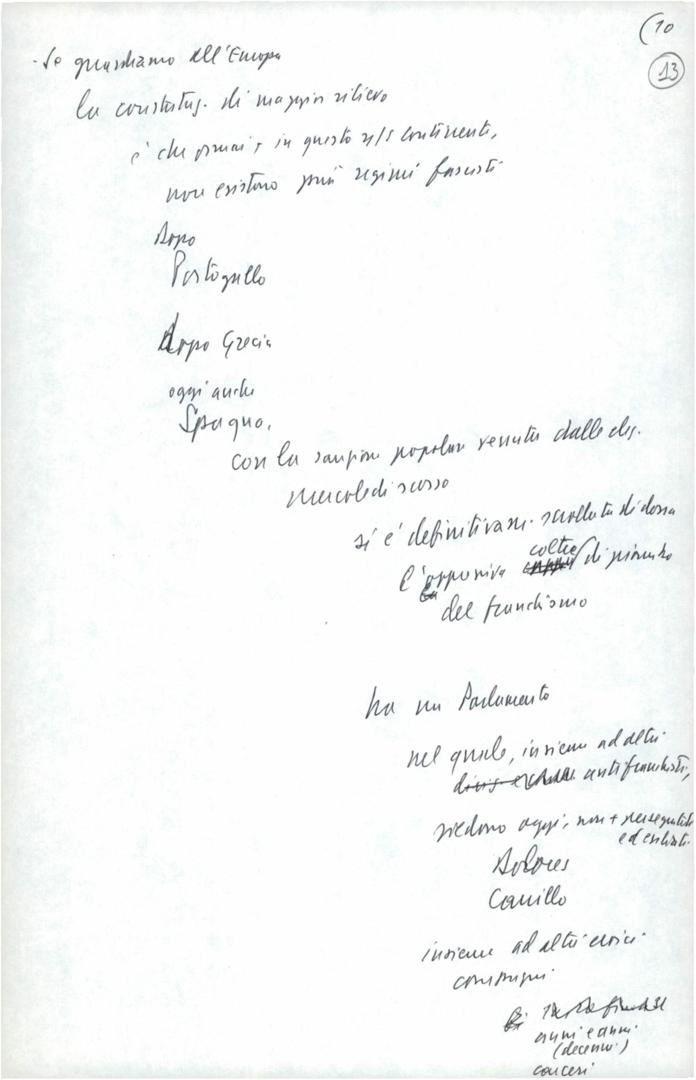 (10
13
- Se guardiamo all'Europa
la constataz. di maggior rilievo
è che ormai, in questo n/s continente,
non esistono più regimi fascisti
Dopo
Portogallo
Dopo Grecia
oggi anche
Spagna,
con la sanzione popolare venuta dalle elez.
mercoledì scorso
si è definitivam. scrollata di dosso
l'oppressiva coltre di piombo
del franchismo
ha un Parlamento
nel quale, insieme ad altri
antifranchisti,
siedono oggi, non + perseguitati
ed esiliati
Dolores
Carrillo
insieme ad altri eroici
compagni
anni e anni
(decenni)
carceri